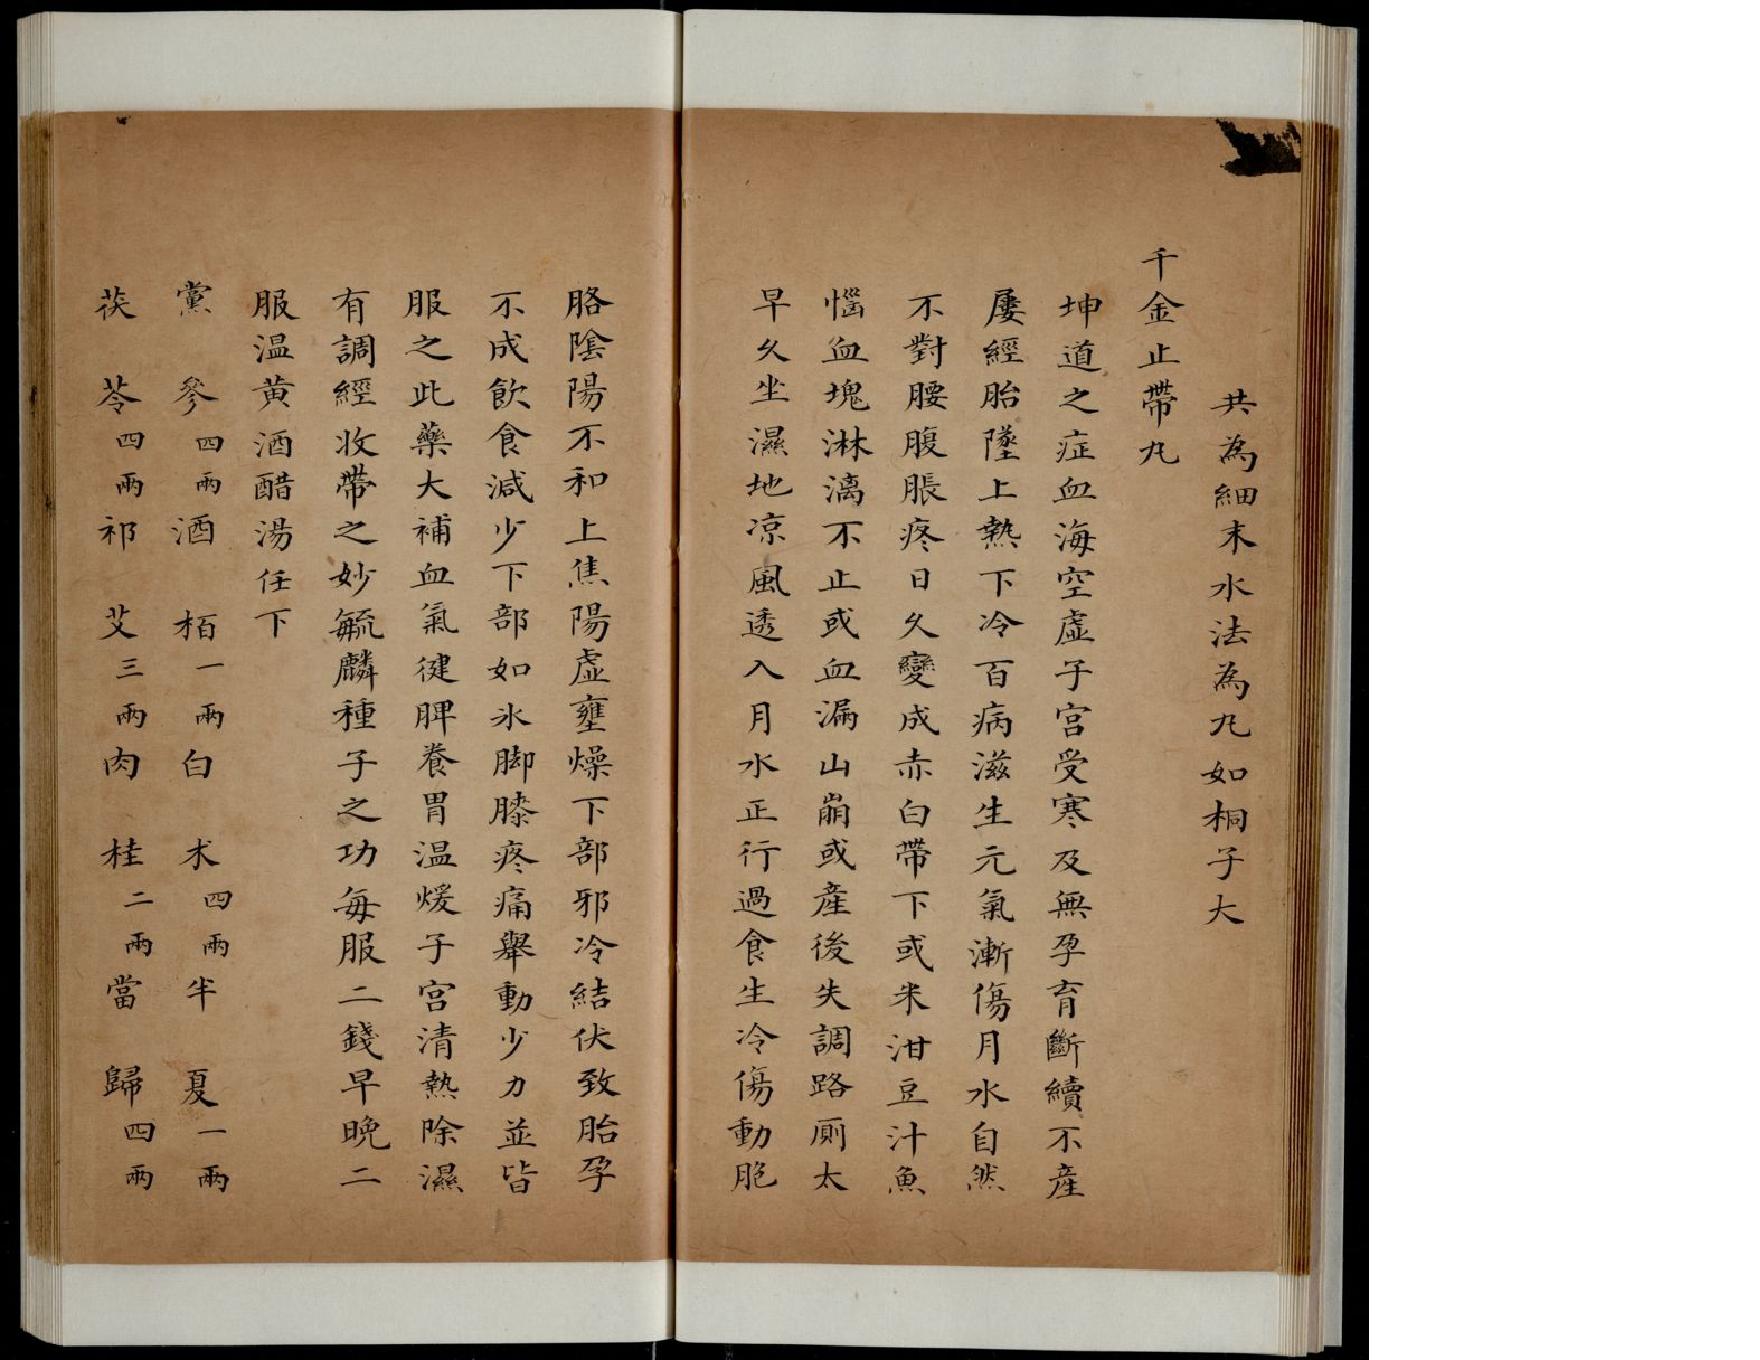 共為細末水法為丸如桐子大
千金止帶丸
坤道之症血海空虛子宮受寒及無孕育斷續不產
屢經胎墜上熱下冷百病滋生元氣漸傷月水自然
不對腰腹脹疼日久變成赤白帶下或米泔豆汁魚
惱血塊淋漓不止或血漏山崩或產後失調路厠太
早久坐濕地凉風透入月水正行過食生冷傷動胞
胳陰陽不和上焦陽虛壅燥下部邪冷結伏致胎孕
不成飲食減少下部如氷脚膝疼痛舉動少力並皆
服之此藥大補血氣徤脾養胃温煖子宮清熱除濕
有調經收帶之妙毓麟種子之功每服二錢早晚二
服温黄酒醋湯任下
黨參四兩酒栢一兩白术四兩半夏一兩
茯苓四兩祁艾三兩肉桂二兩當歸四兩